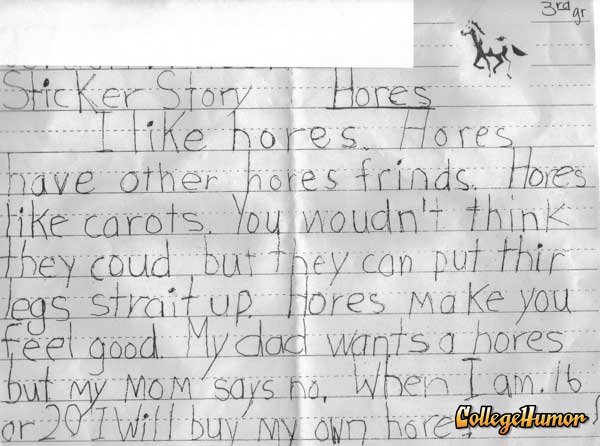 3rd gr
Sticker Story Hores
I like hores. Hores
have other hores frinds. Hores
like carots. You woudn't think
they coud but they can put thir
legs strait up. Hores make you
feel good. My dad wants a hores
but my mom says no. When I am 16
or 20 I will buy my own hores
CollegeHumor